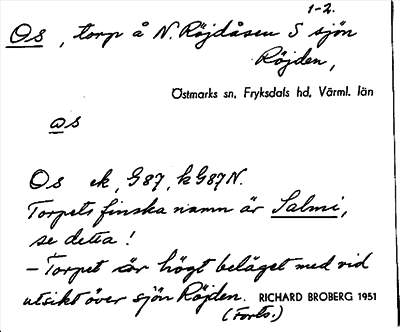 1-2.
Os, torp å N. Röjdåsen S sjön
Röjden,
Östmarks sn, Fryksdals hd, Värml. län
ɷs
Os ek, G87, kG87N.
Torpets finska namn är Salmi,
se detta!
– Torpet är högt beläget med vid
utsikt över sjön Röjden. RICHARD BROBERG 1951
(Forts.)